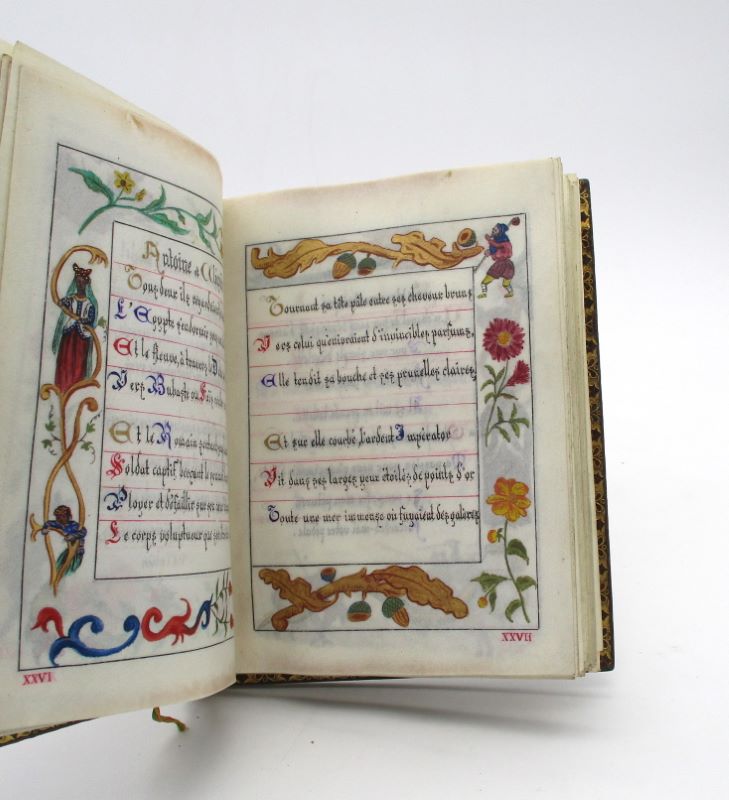 Antoine e
Tous deux ils regardaient
L'Egypte s'endormir
Et le fleuve, à travers
Vers Bubaste ou Saïs
Et le Romain sentant
Soldat captif berçant le
Ployer et défaillir sur son
Le corps voluptueux que
XXVI
Tournant sa tête pâle entre ses cheveux bruns
Vers celui qu'enivraient d'invincibles parfums,
Elle tendit sa bouche et ses prunelles claires;
Et sur elle courbé, l'ardent Impérator
Vit dans ses larges yeux étoilés de points d'or
Toute une mer immense où fuyaient des galères
XXVII